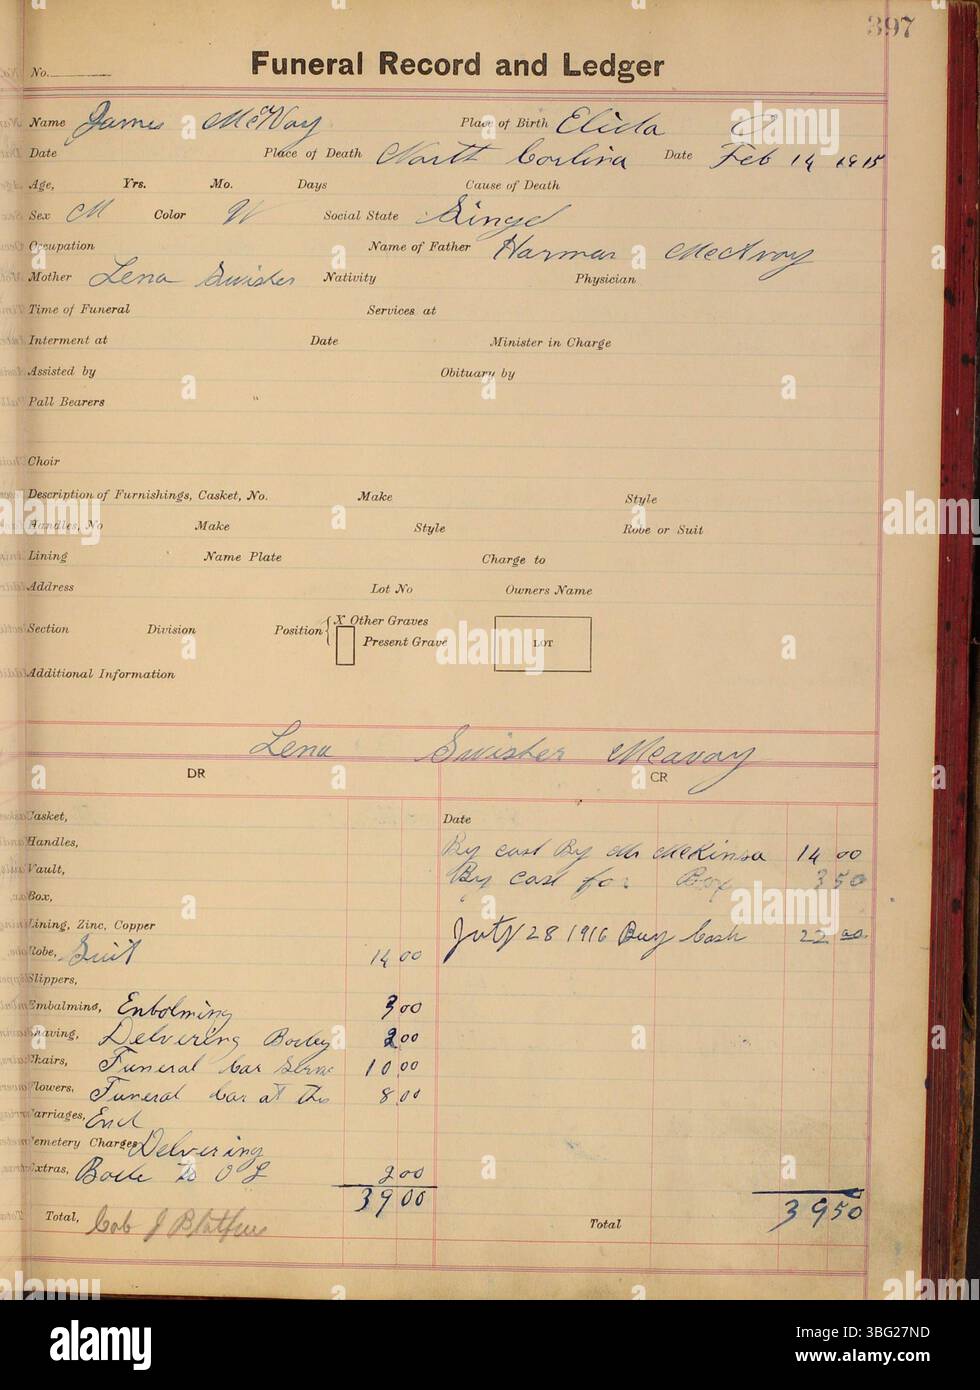 397
No. Funeral Record and Ledger
Name James McAvoy Place of Birth Elida O
Date Place of Death North Corlina Date Feb 14 1915
Age, Yrs. Mo. Days Cause of Death
Sex M Color W Social State Singel
Occupation Name of Father Harman McAvoy
Mother Lena Swister Nativity Physician
Time of Funeral Services at
Interment at Date Minister in Charge
Assisted by Obituary by
Pall Bearers
Choir
Description of Furnishings, Casket, No. Make Style
Handles, No Make Style Robe or Suit
Lining Name Plate Charge to
Address Lot No Owners Name
Section Division Position X Other Graves
Present Grave LOT
Additional Information
Lena Swister Mcavoy
DR CR
Casket, Date
Handles, By cast By Mr McKinsa 14 00
Vault, By cast for Box 3 50
Box,
Lining, Zinc, Copper July 28 1916 Buy Cash 22 00
Robe, Suit 14 00
Slippers,
Embalming, Enbolming 3 00
Shaving, Delvering Bodey 2 00
Chairs, Funeral Car 10 00
Flowers, Funeral Car at this 8 00
Carriages, End
Cemetery Charges Delvering
Extras, to O 2 00
39 00 39 50
Total, Total
alamy
Image ID: 3BG27ND
www.alamy.com